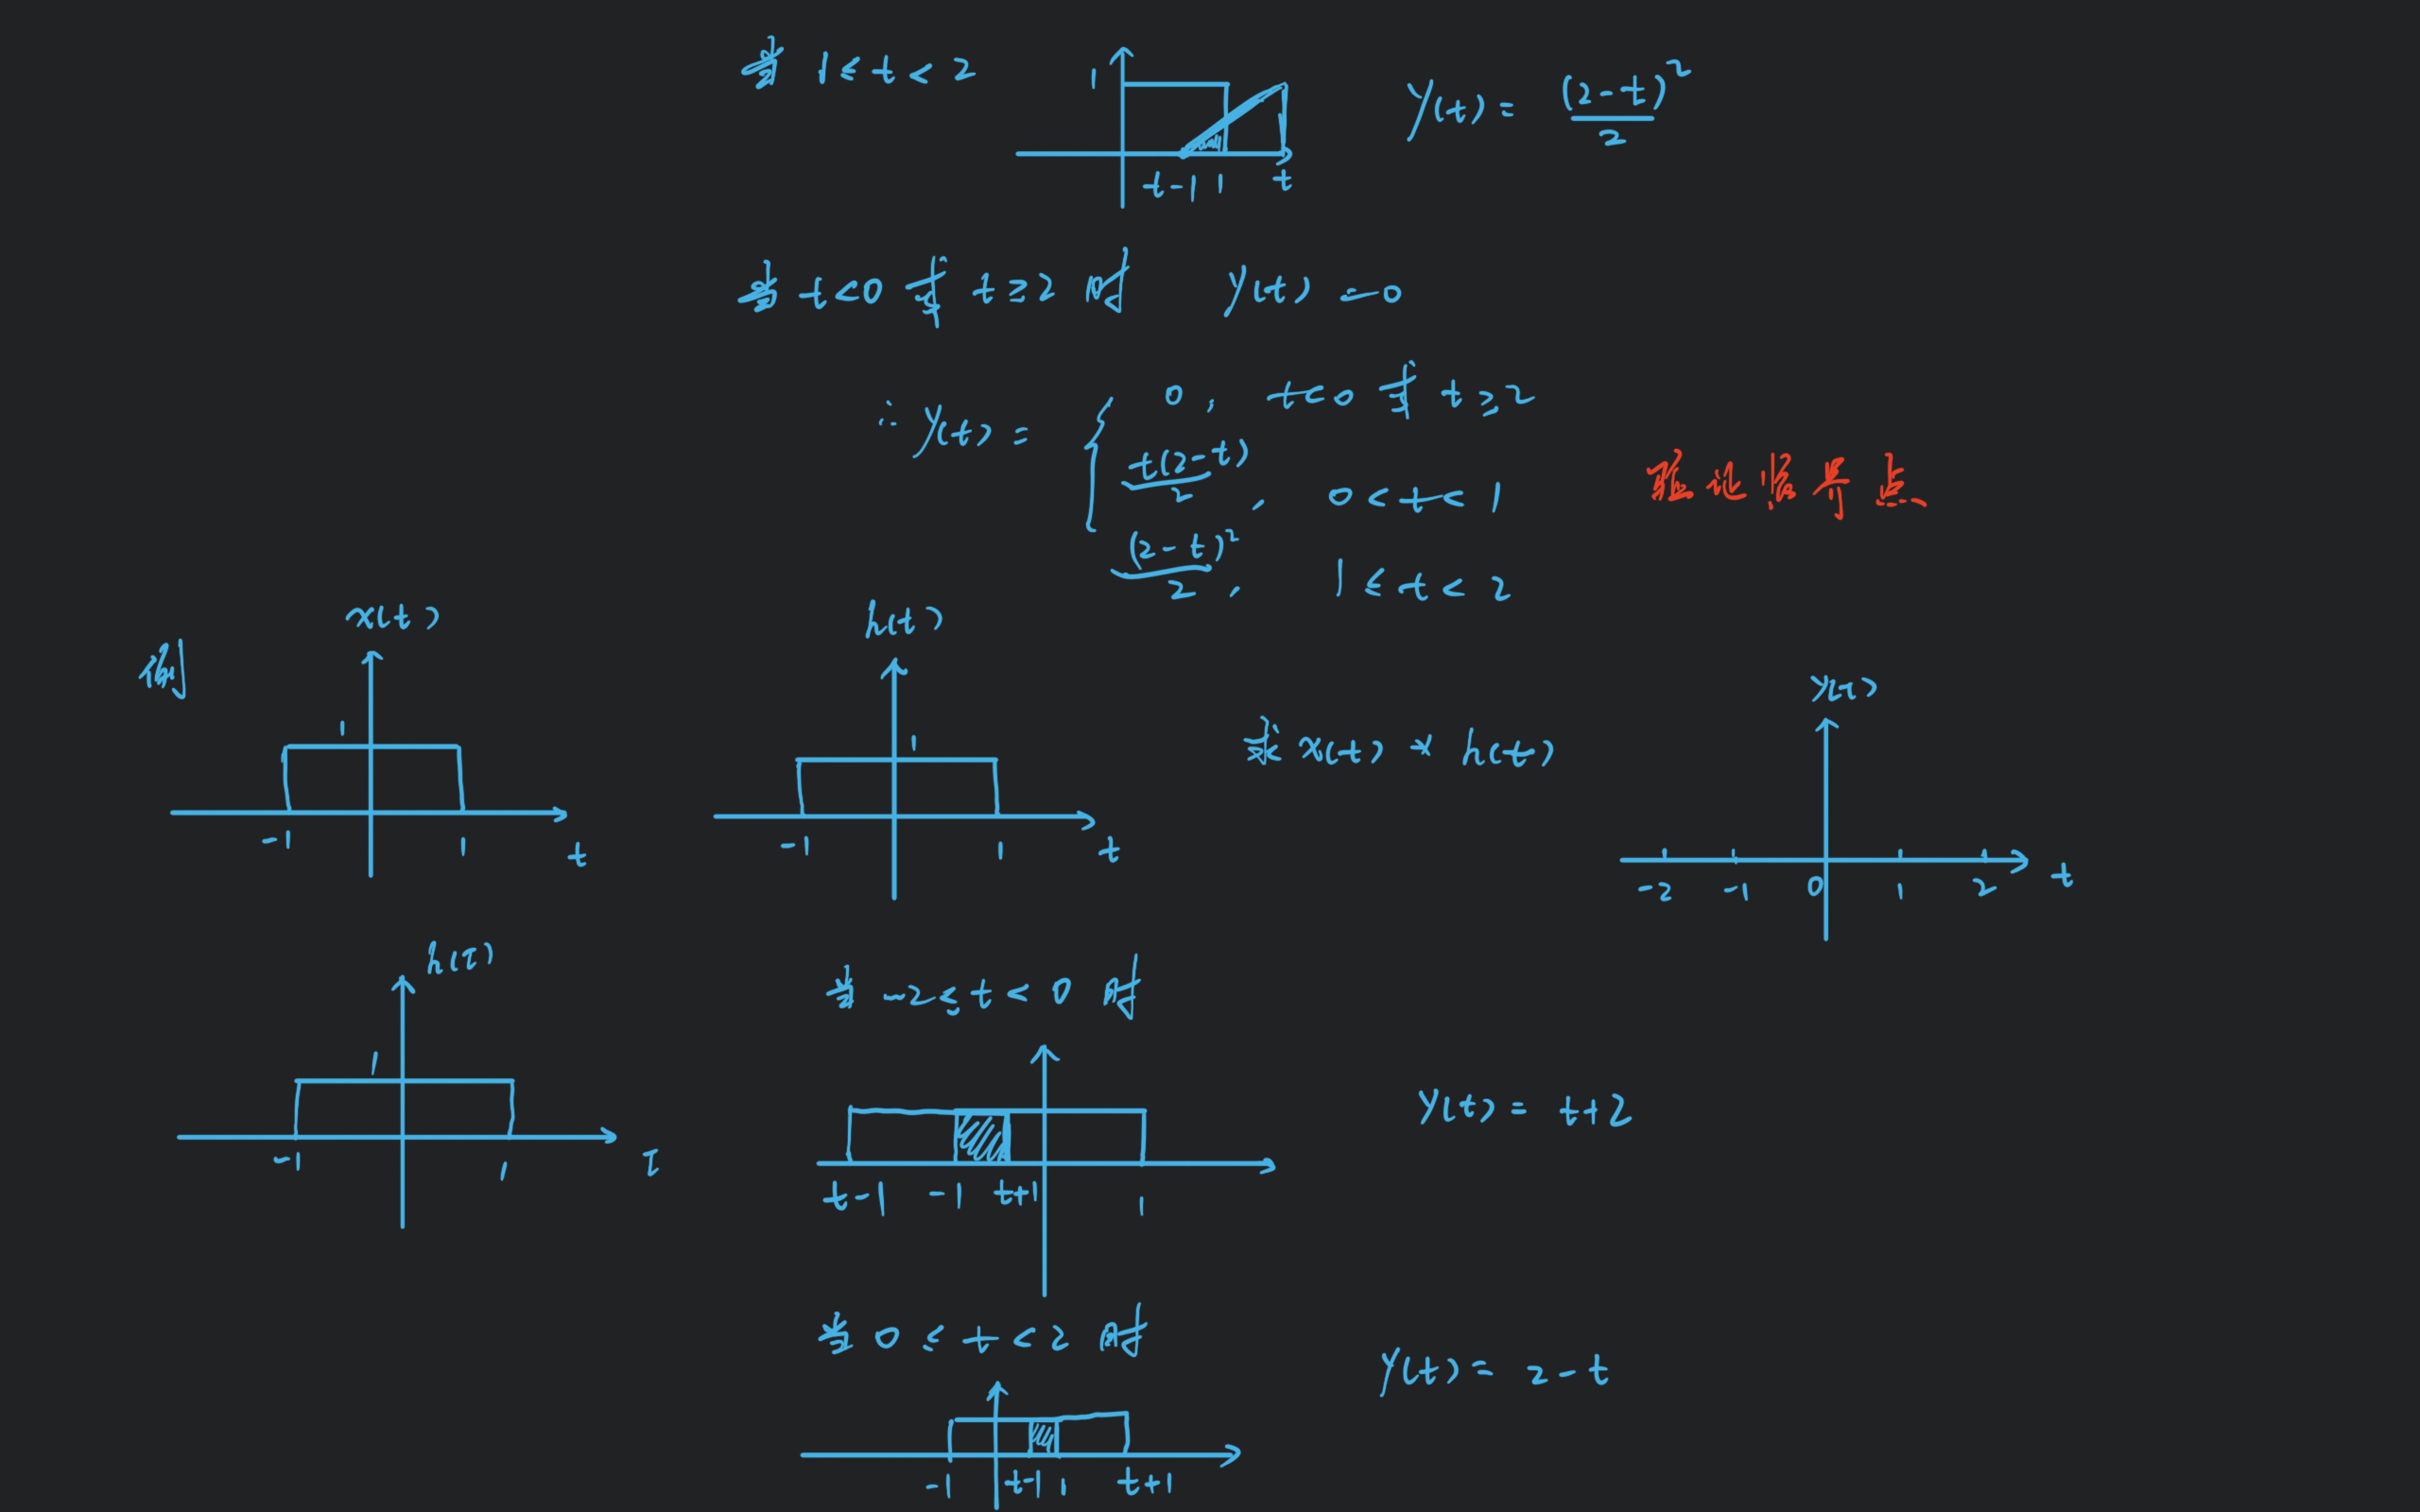 当 1≤t<2
1
t-1 1 t
y(t)= (2-t)²/2
当 t<0 或 t≥2 时 y(t)=0
∴ y(t)= { 0, t<0 或 t≥2
t(2-t)/2, 0<t<1
(2-t)²/2, 1≤t<2
例
x(t)
1
-1 1 t
h(t)
1
-1 1 t
求 x(t) * h(t)
-2 -1 0 1 2 t
h(τ)
1
-1 1 τ
当 -2≤t<0 时
t-1 -1 t+1 1
y(t)= t+2
当 0≤t<2 时
-1 t-1 1 t+1
y(t)= 2-t